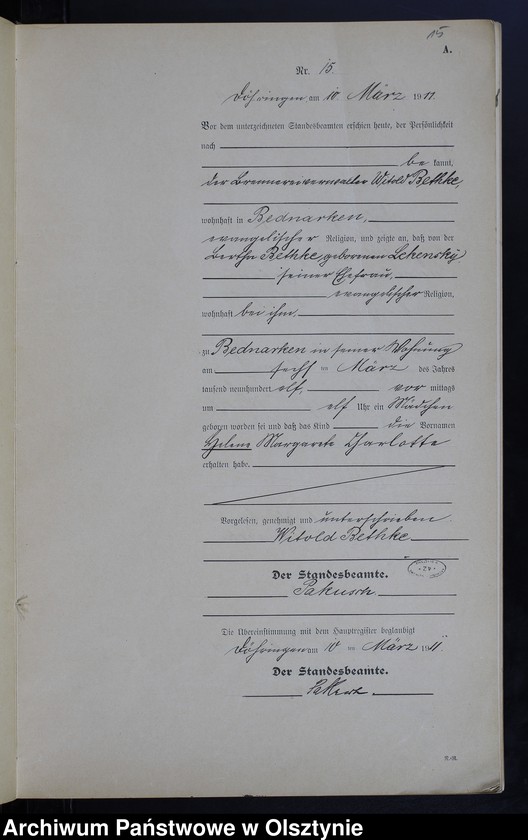 15
A.
Nr. 15.
Döhringen, am 10 März 1911.
Vor dem unterzeichneten Standesbeamten erschien heute, der Persönlichkeit
nach
be kannt,
der Brennereiverwalter Witold Bethke,
wohnhaft in Bednarken,
evangelischer Religion, und zeigte an, daß von der
Bertha Bethke, geborenen Lehensky
seiner Ehefrau,
evangelischer Religion,
wohnhaft bei ihm,
zu Bednarken in seiner Wohnung
am sechsten März des Jahres
tausend neunhundert elf, vor mittags
um elf Uhr ein Mädchen
geboren worden sei und daß das Kind die Vornamen
Helene Margarete Charlotte
erhalten habe.
Vorgelesen, genehmigt und unterschrieben.
Witold Bethke
Der Standesbeamte.
Die Übereinstimmung mit dem Hauptregister beglaubigt
Döhringen am 10 ten März 1911.
Der Standesbeamte.
Archiwum Państwowe w Olsztynie